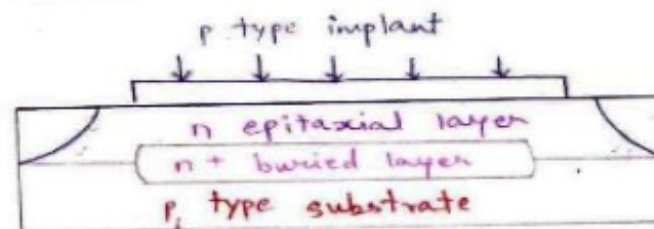 p type implant
n epitaxial layer
n+ buried layer
p, type substrate